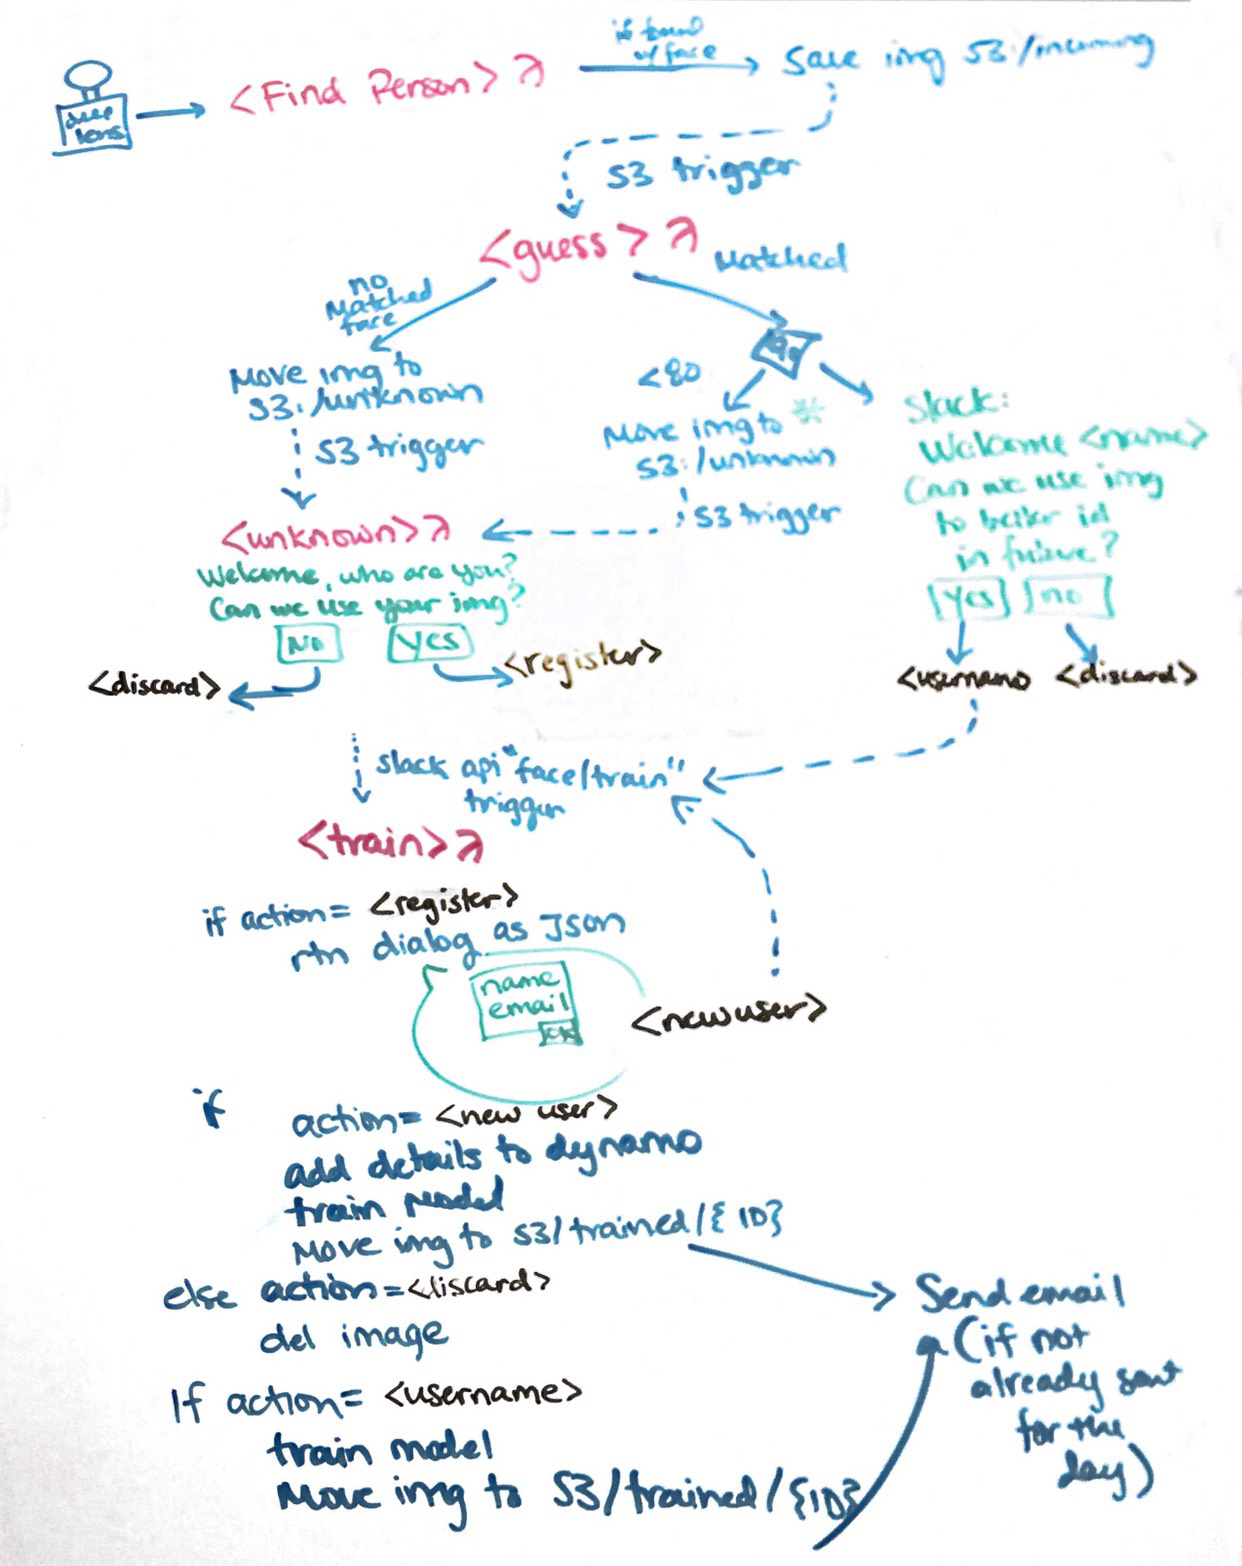 if found
w/ face
<Find Person> λ
Save img S3:/incoming
deep
lens
S3 trigger
<guess> λ
Matched
no
Matched
face
Move img to
S3:/unknown
S3 trigger
<80
Move img to *
S3:/unknown
S3 trigger
Slack:
Welcome <name>
Can we use img
to better id
in future?
Yes no
<username <discard>
<unknown> λ
Welcome, who are you?
Can we use your img?
No Yes
<discard>
<register>
slack api "face/train"
trigger
<train> λ
if action= <register>
rtn dialog as Json
name
email
<new user>
if action= <new user>
add details to dynamo
train model
Move img to S3/trained/{ID}
else action=<discard>
del image
If action= <username>
train model
Move img to S3/trained/{ID}
Send email
(if not
already sent
for the
day)